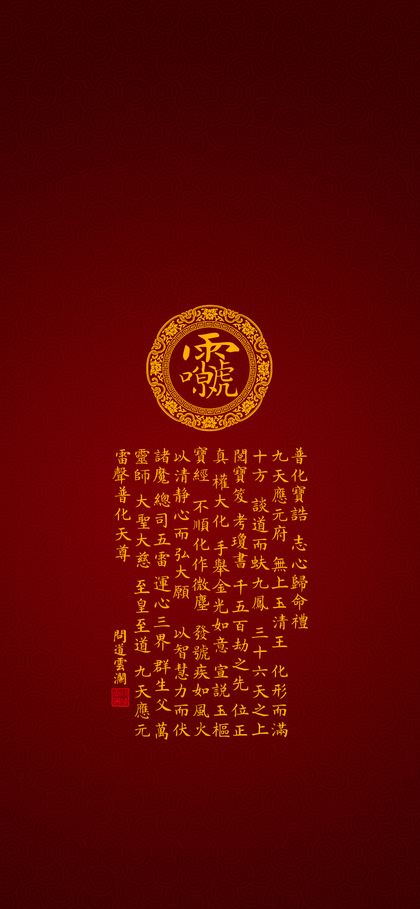 普化寶誥 志心歸命禮
九天應元府 無上玉清王 化形而滿
十方 談道而趺九鳳 三十六天之上
閱寶笈 考瓊書 千五百劫之先 位正
真 權大化 手舉金光如意 宣説玉樞
寶經 不順化作微塵 發號疾如風火
以清靜心而弘大願 以智慧力而伏
諸魔 總司五雷 運心三界 群生父 萬
靈師 大聖大慈 至皇至道 九天應元
雷聲普化天尊
問道雲瀾